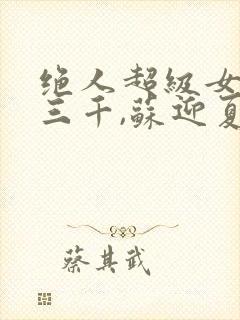 绝人超级女
三千,蘇迎夏
蔡其武